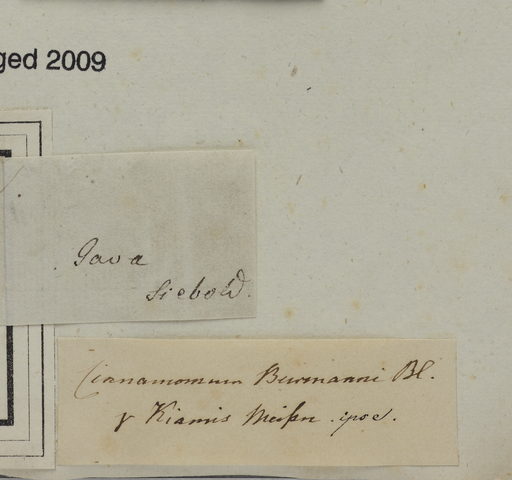 ged 2009
Java
Siebold.
Cinnamomum Burmanni Bl.
γ Kiamis Meißn. ipse.